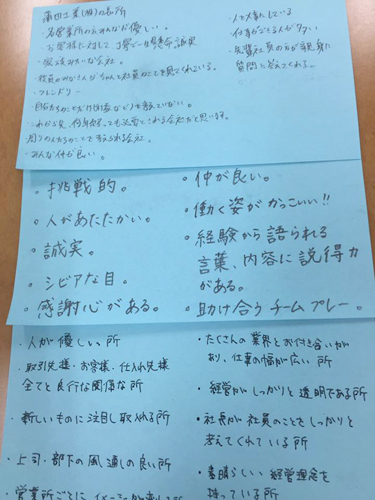 蒲田工業(株)の長所
・各営業所のみなさんが優しい。
・お客様に対して、丁寧に一生懸命、誠実
・家族みたいな会社。
・役員のみなさんがちゃんと社員のことを見てくれている。
・フレンドリー
・周りの人たちのことを考えられる会社。
・みんな仲が良い。
・人を大事にしている
・仕事ができる人が多い
・先輩社員の方が親身に
質問に答えてくれる。
・挑戦的。
・人があたたかい。
・誠実。
・シビアな目。
・感謝心がある。
・仲が良い。
・働く姿がかっこいい!!
・経験から語られる
言葉、内容に説得力
がある。
・助け合うチームプレー。
・人が優しい所
・取引先様・お客様、仕入れ先様
全てと良行な関係な所
・新しいものに注目し取入れる所
・上司・部下の風通しの良い所
・営業所ごとに
・たくさんの業界とお付き合いが
あり、仕事の幅が広い所
・経営がしっかりと透明である所
・社長が社員のことをしっかりと
考えてくれている所
・素晴らしい経営理念を
持っている所